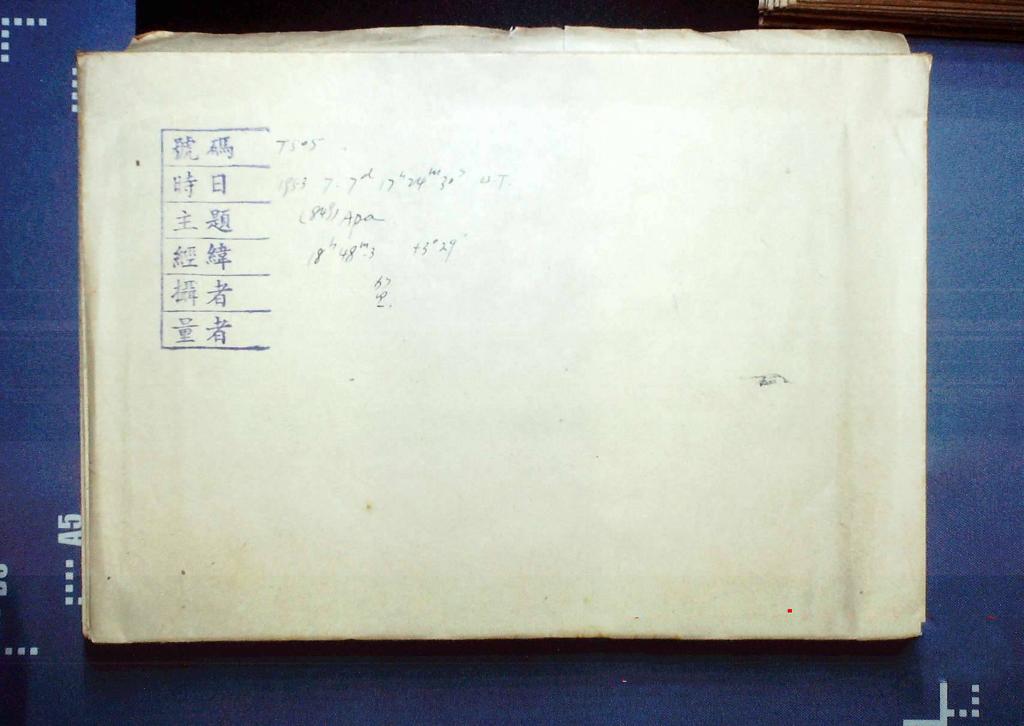 號碼 T505
時日 1953 7. 7ᵈ 17ʰ 24ᵐ 30ˢ U.T.
主題 (849) Ara
經緯 18ʰ 48ᵐ.3 +3°29'
攝者
量者
A5